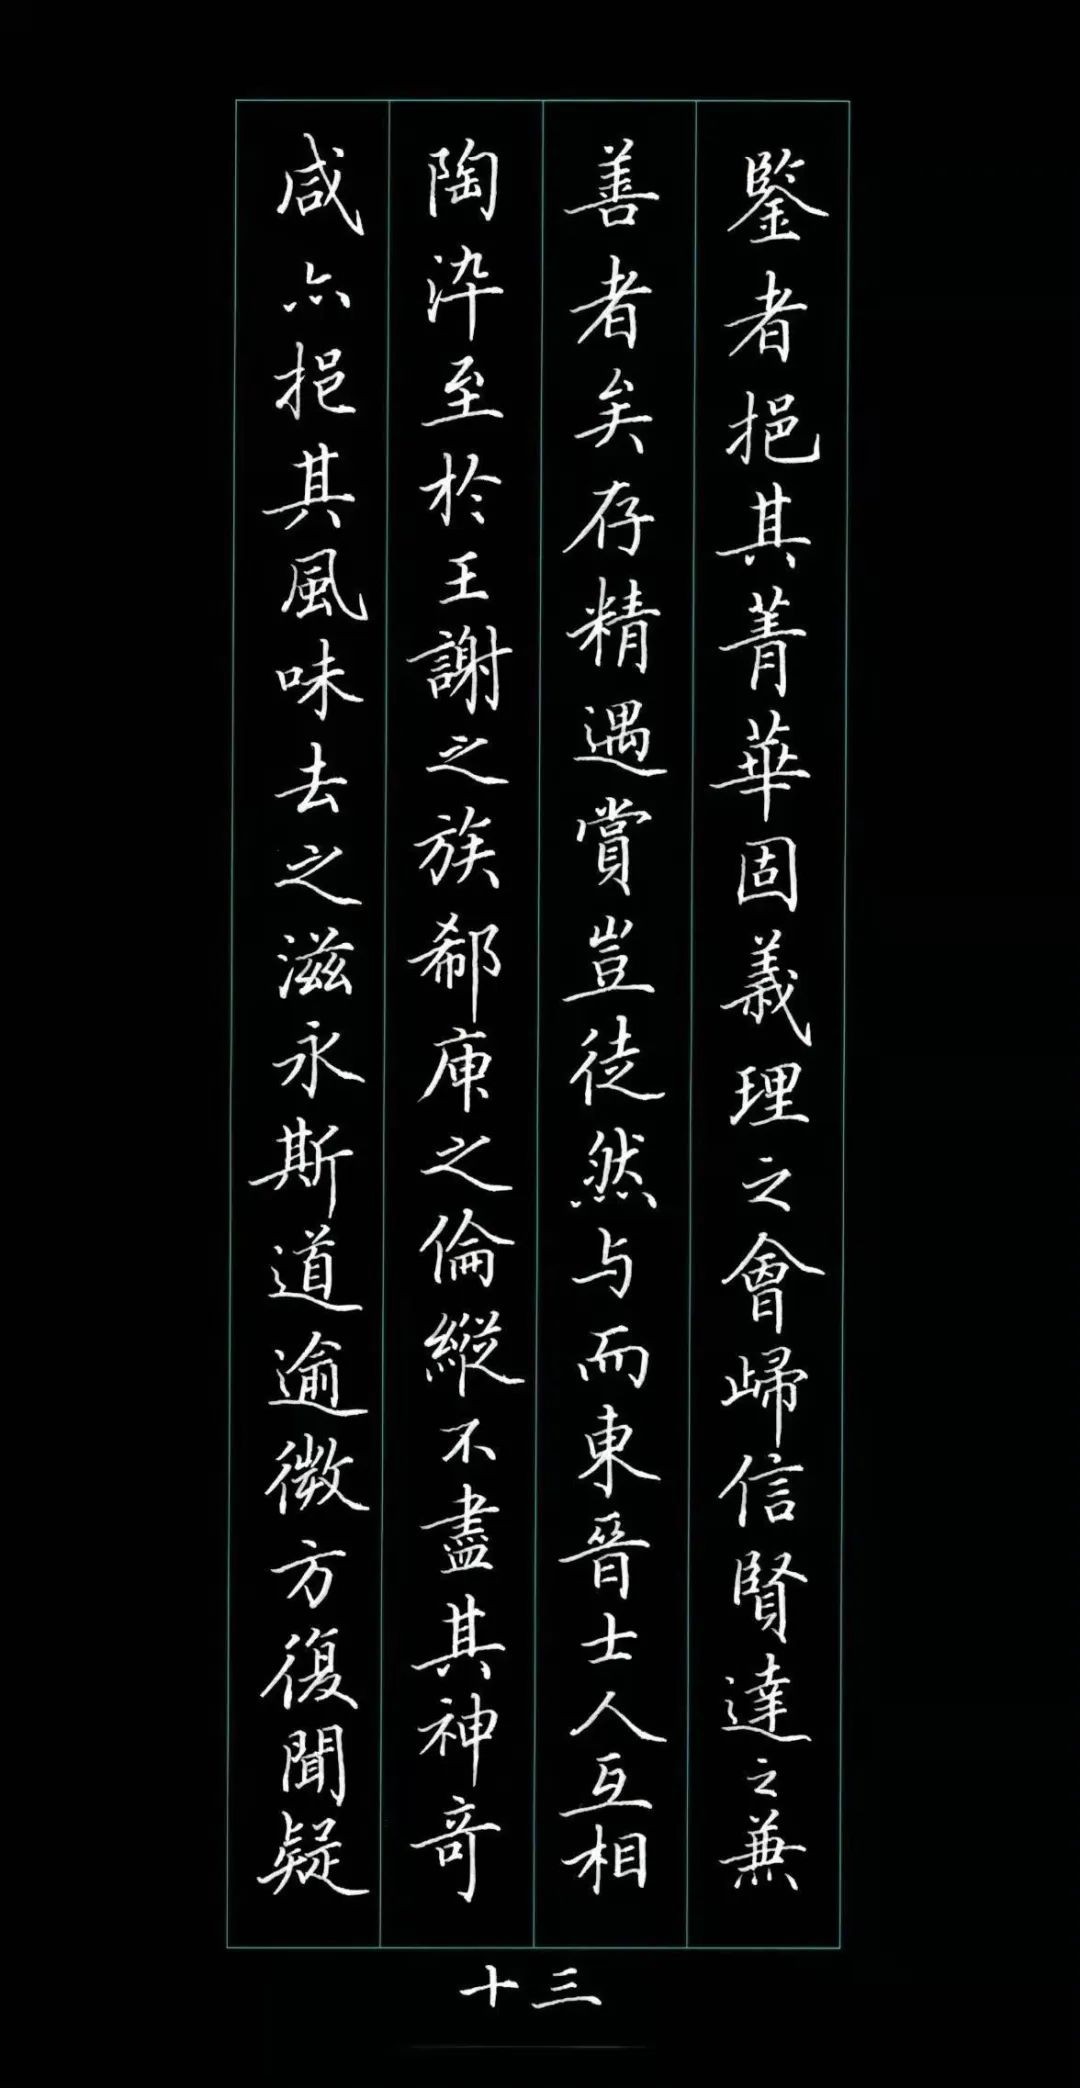 鑒者挹其菁華固義理之會歸信賢達之兼
善者矣存精遇賞豈徒然与而東晉士人互相
陶淬至於王謝之族郗庾之倫縱不盡其神奇
咸亦挹其風味去之滋永斯道逾微方復聞疑
十三